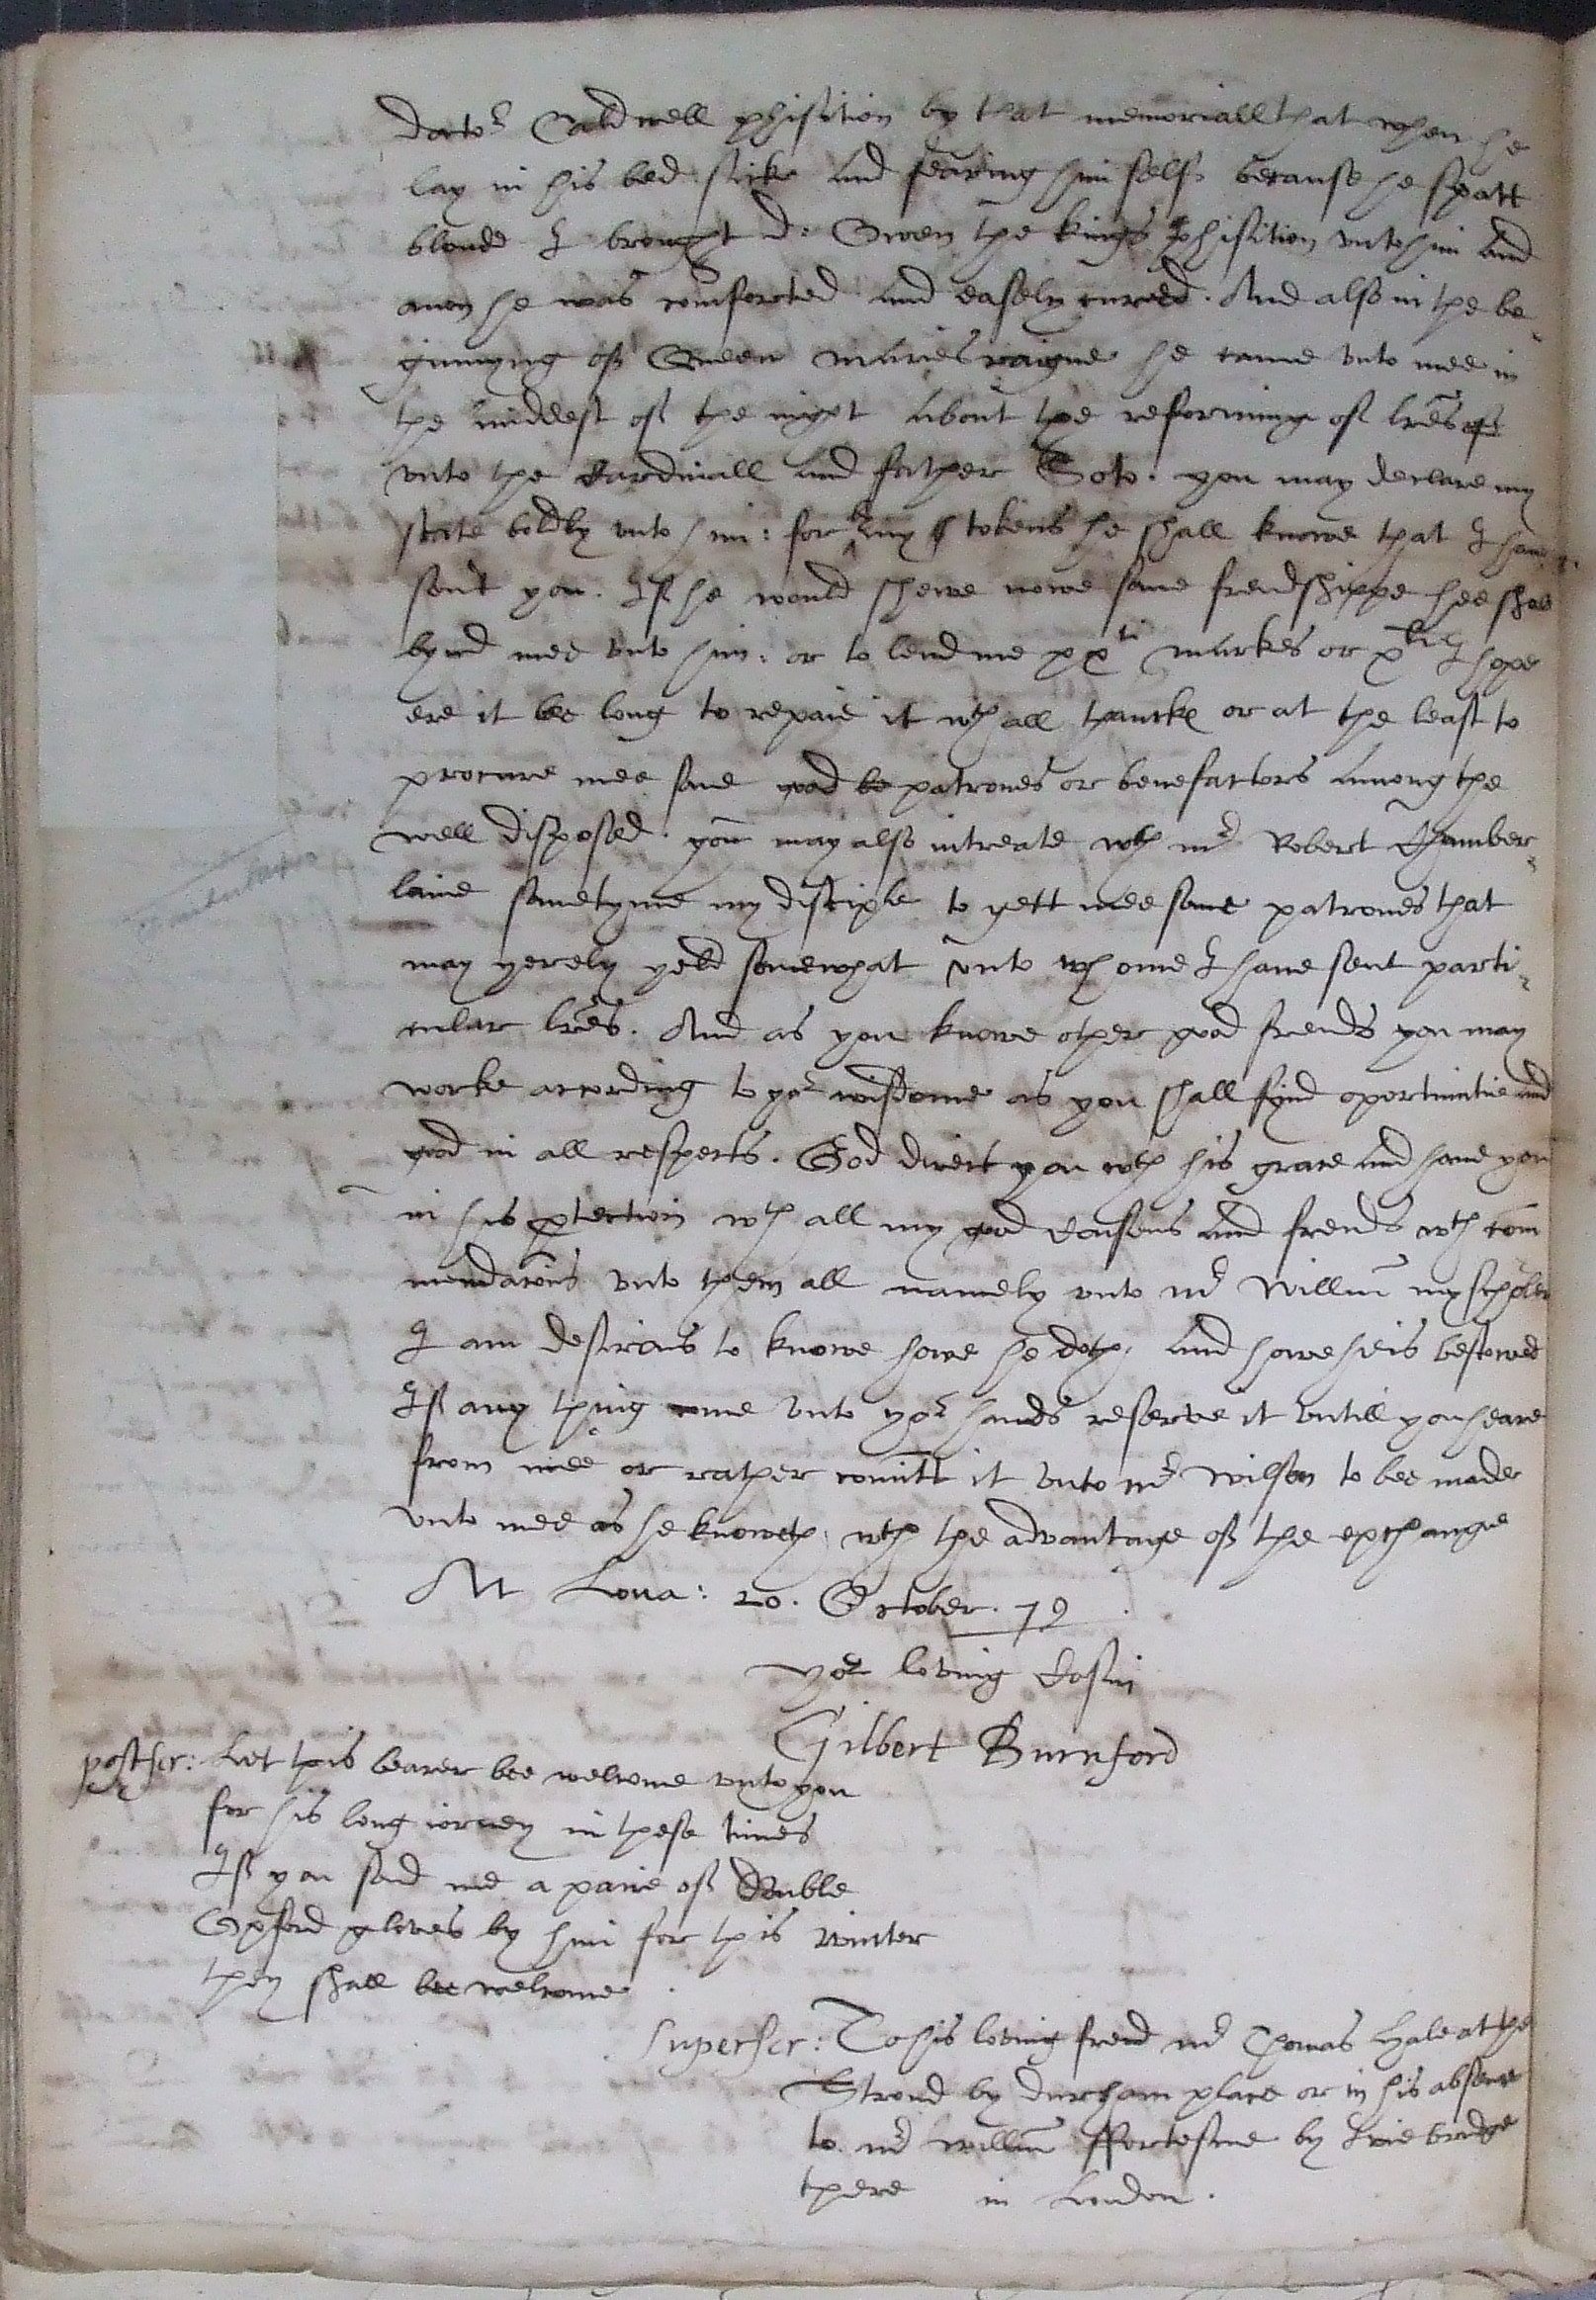 docto:r Caldwell phisition by that memoriall that when he
lay in his bed sicke and fearing him self because he spatt
bloude I brought d: Owen the kings phisition unto him and
anon he was comforted and easely cured. And also in the be-
ginnyng of Queen maries raigne he came unto mee in
the middest of the night about the reforming of lres
unto the Cardinall and father Soto. you may declare my
state boldly unto him: for by tokens he shall knowe that I have
sent you. If he would shewe nowe some frendshippe hee shall
bynd mee unto him: or to lend me xx ti markes or x li I hope
ere it bee long to repaie it wth all thancks or at the least to
procure mee some good patrones or benefactors among the
well disposed. you may also intreate wth mr Robert Chamber-
laine sometyme my disciple to gett mee some patrones that
may yerely yeld somewhat unto whome I have sent parti-
cular lres. And as you knowe other good frends you may
worke according to yor wisdome as you shall fynd oportunitie and
good in all respects. God direct you wth his grace and have you
in his ptection wth all my good Cousens and frends wth com
mendacons unto them all namely unto mr Willm my scholler
I am desirous to knowe howe he doth, and howe he is bestowed
If any thing come unto yor hands reserve it untill you heare
from mee or rather comitt it unto mr Wilson to bee made
unto mee as he knoweth, wth the advantage of the exchange
At Lova: 20. October. 79
yor loving Cosin
Gilbert Burnford
postscr: Let this bearer bee welcome unto you
for his long iorney in these times
If you send me a paire of double
Oxford gloves by him for this winter
they shall bee welcome.
superscr: To his loving frend mr Thomas Hale at the
Strond by durham place or in his absence
to mr willm ffortescue by Ivie bridge
there in London.